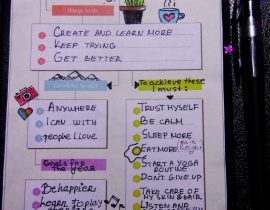 Things to do
CREATE AND LEARN MORE
KEEP TRYING
GET BETTER
To achieve these
I must:
ANYWHERE
I CAN WITH
PEOPLE I LOVE
TRUST MYSELF
BE CALM
SLEEP MORE
EAT MORE
START A YOGA
ROUTINE
DON'T GIVE UP
TAKE CARE OF
MY SKIN & HAIR
LISTEN AND
Goals for
the year
BE HAPPIER
LEARN TO PLAY